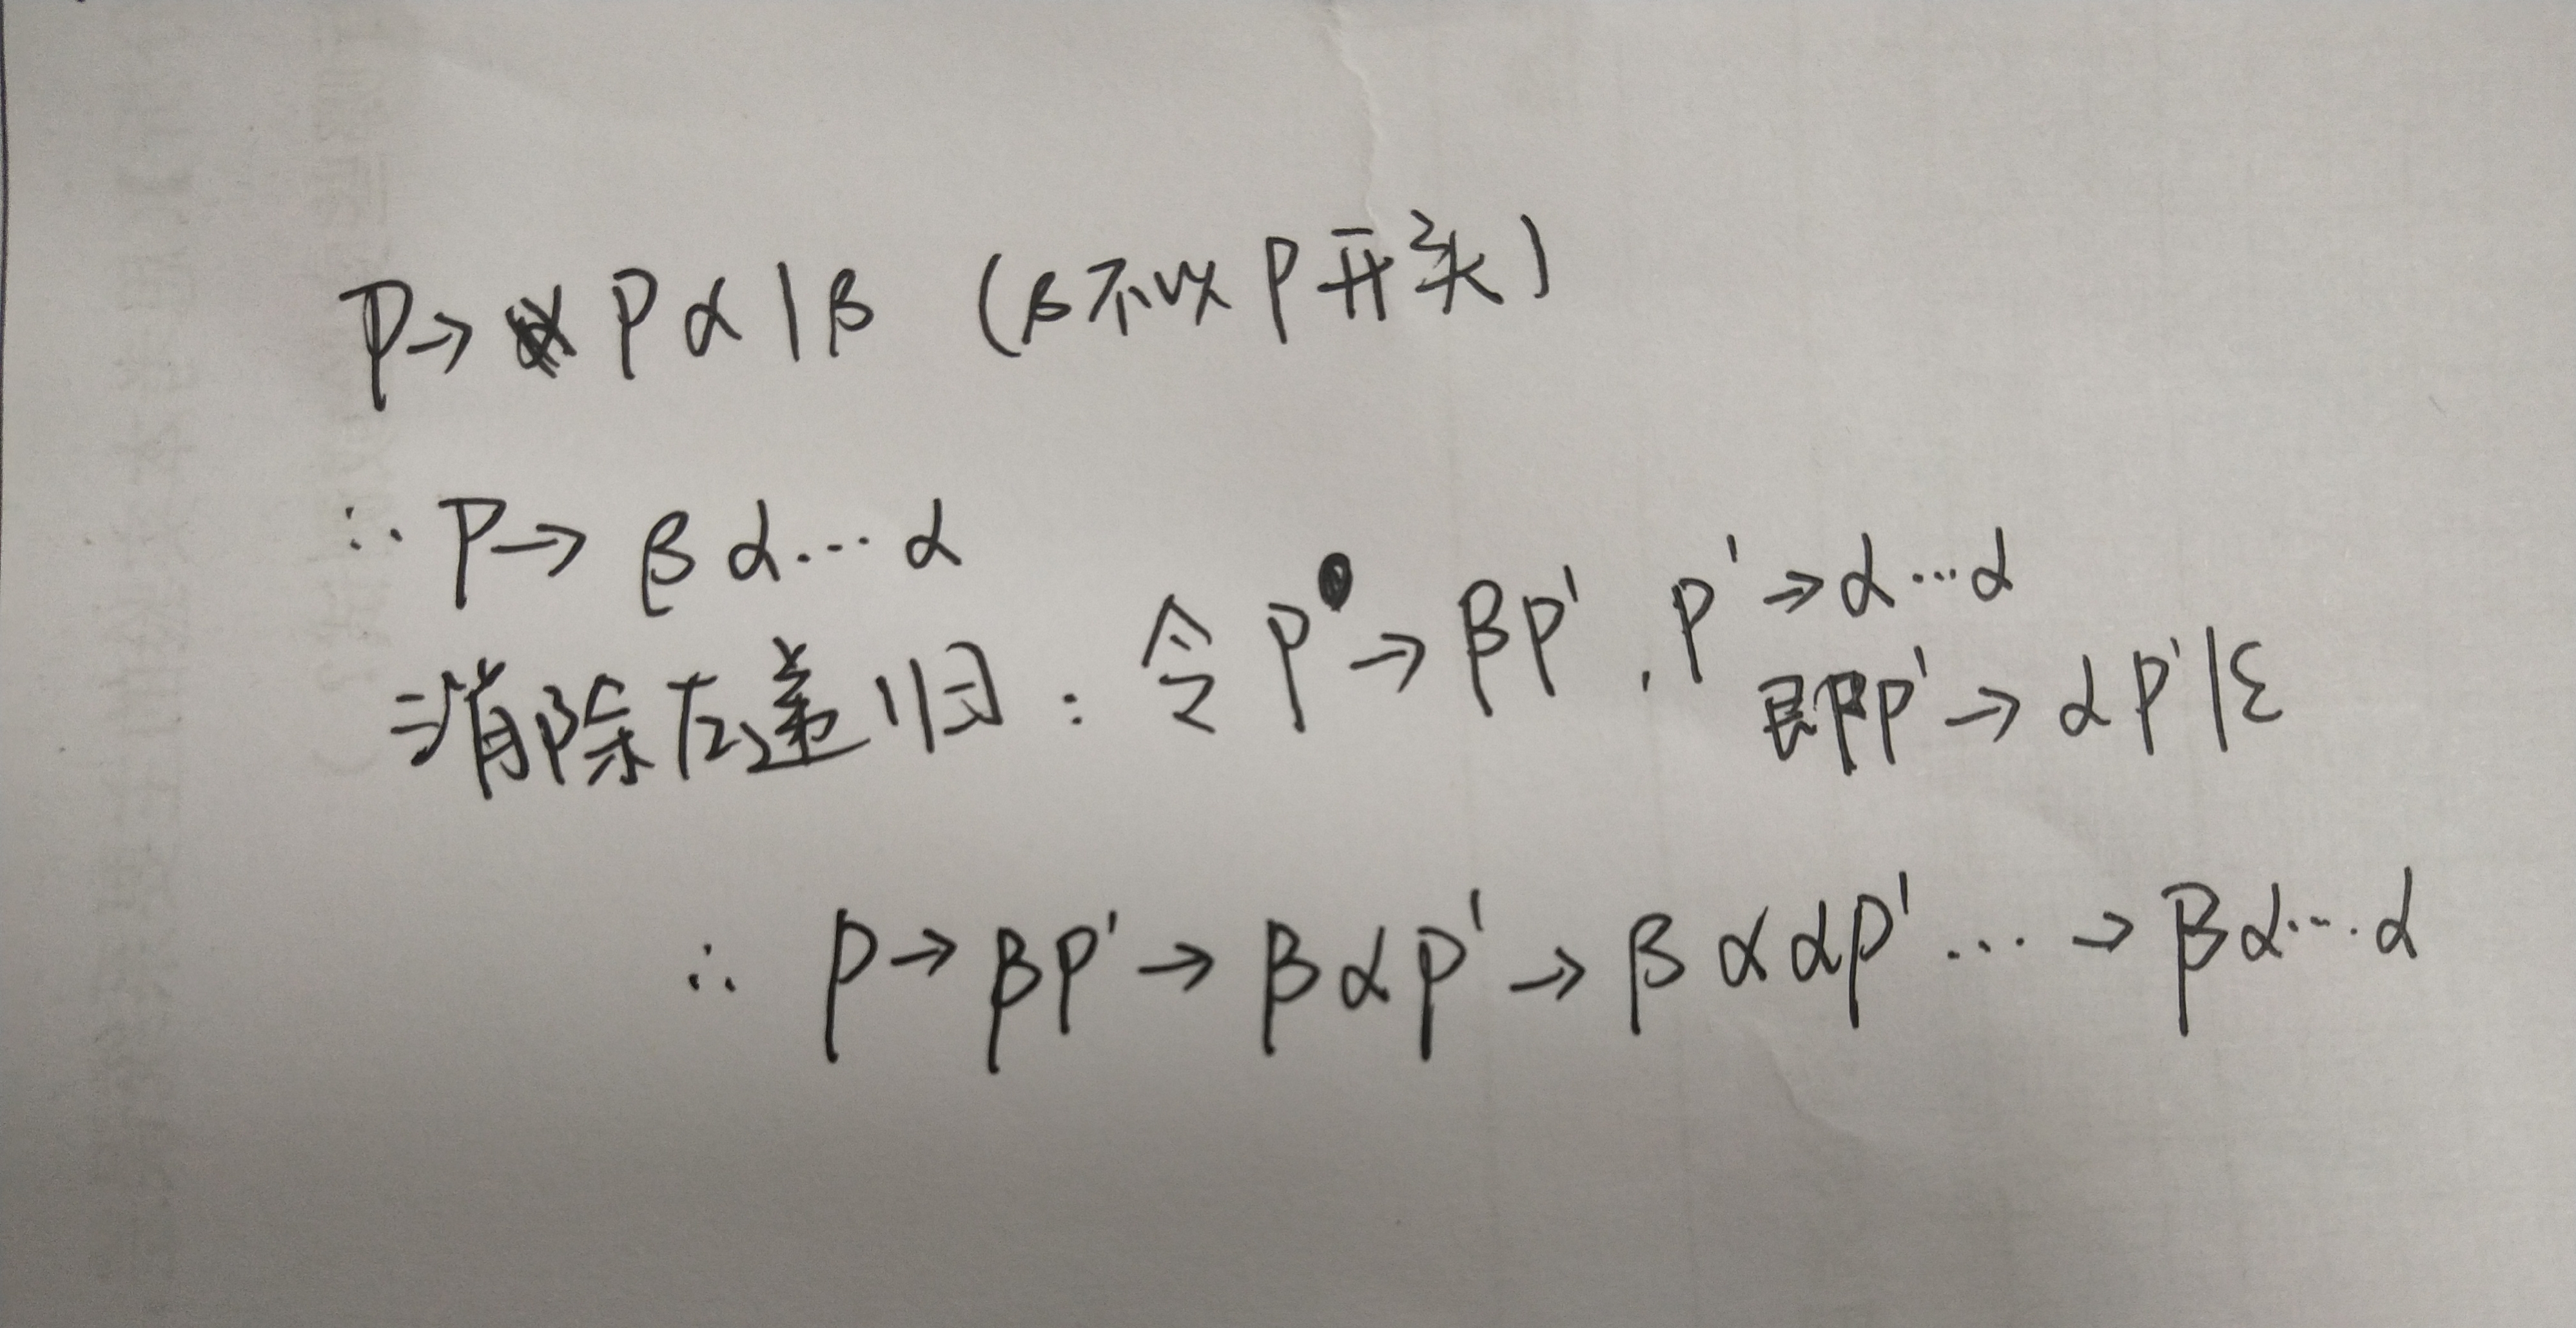 P→ Pα|β (β不以P开头)
∴ P→ βα…α
消除左递归：令P→βP'，P'→α…α
即P'→αP'|ε
∴ P→βP'→βαP'→βααP'…→βα…α